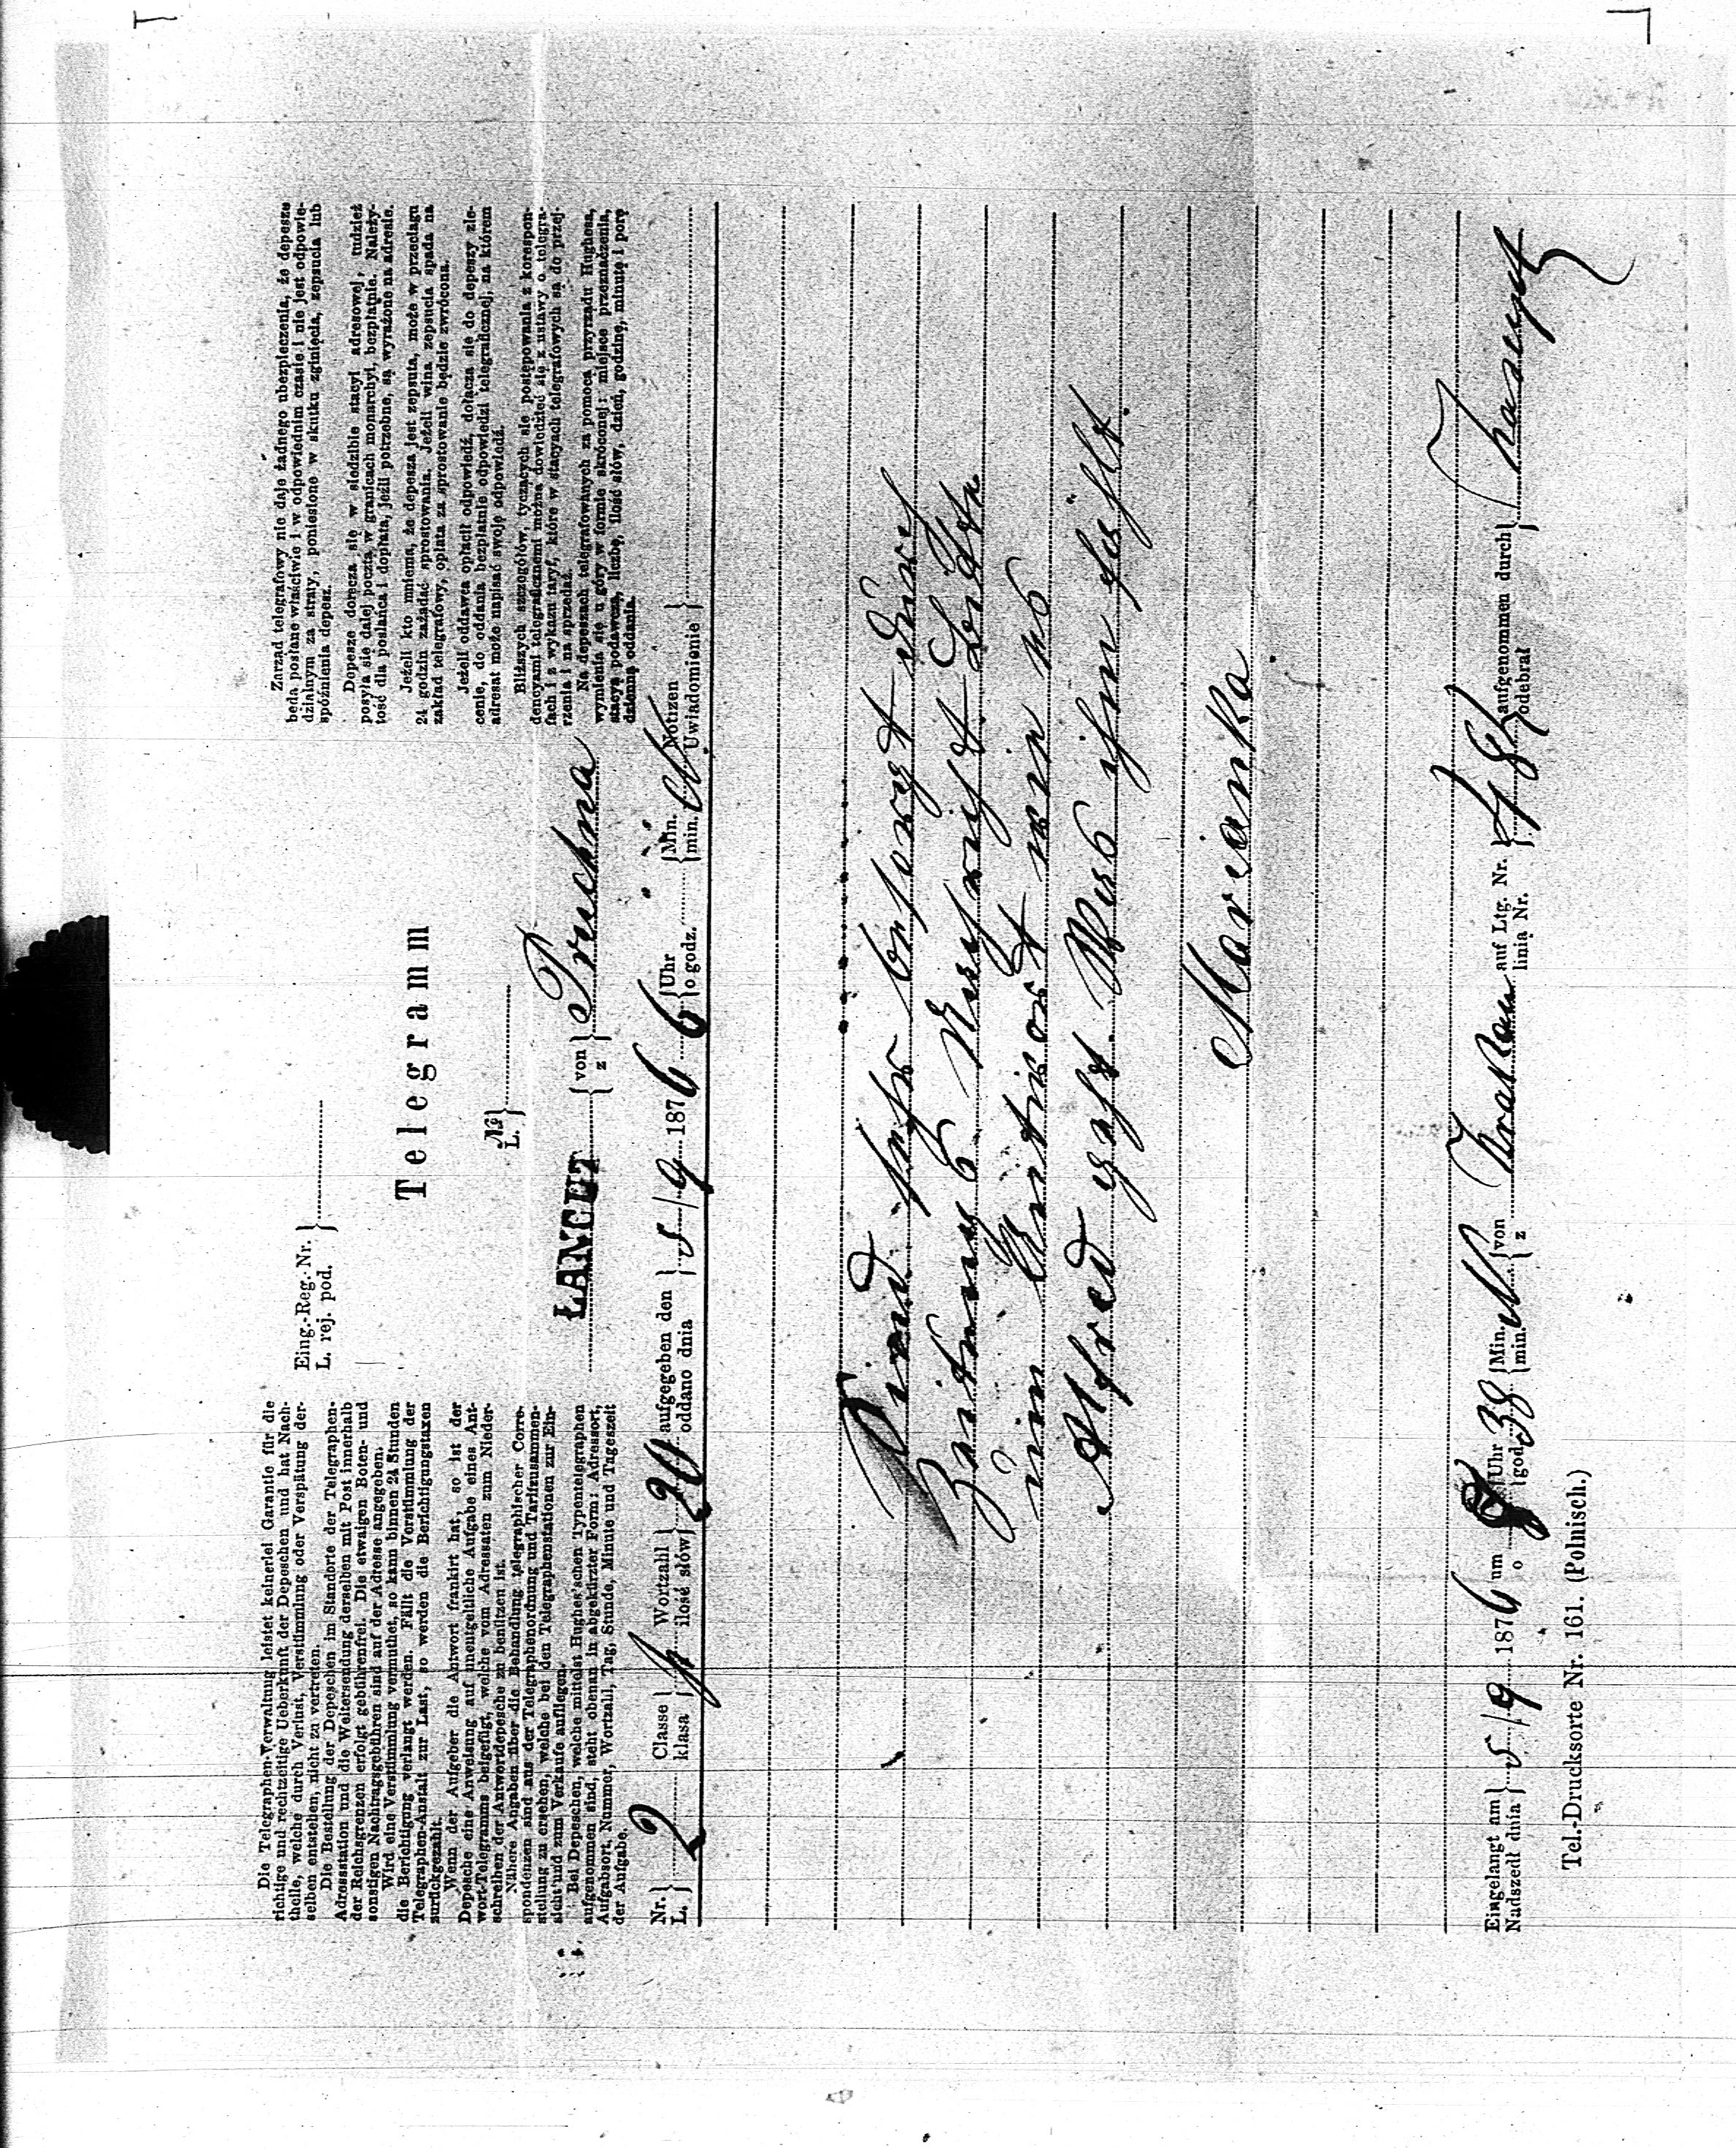 Eing.-Reg.-Nr.
L. rej. pod.
Telegramm
Die Telegraphen-Verwaltung leistet keinerlei Garantie für die
richtige und rechtzeitige Ueberkunft der Depeschen und hat Nach-
theile, welche durch Verlust, Verstümmlung oder Verspätung der-
selben entstehen, nicht zu vertreten.
Die Bestellung der Depeschen im Standorte der Telegraphen-
Adressstation und die Weitersendung derselben mit Post innerhalb
der Reichsgrenzen erfolgt gebührenfrei. Die etwaigen Boten- und
sonstigen Nachtragsgebühren sind auf der Adresse angegeben.
Wird eine Verstümmlung vermuthet, so kann binnen 24 Stunden
die Berichtigung verlangt werden. Fällt die Verstümmlung der
Telegraphen-Anstalt zur Last, so werden die Berichtigungstaxen
zurückgezahlt.
Wenn der Aufgeber die Antwort frankirt hat, so ist der
Depesche eine Anweisung auf unentgeltliche Aufgabe eines Ant-
wort-Telegramms beigefügt, welche vom Adressaten zum Nieder-
schreiben der Antwortdepesche zu benützen ist.
Nähere Angaben über die Behandlung telegraphischer Corre-
spondenzen sind aus der Telegraphenordnung und Tarifzusammen-
stellung zu ersehen, welche bei den Telegraphenstationen zur Ein-
sicht und zum Verkaufe aufliegen.
Bei Depeschen, welche mittelst Hughes'schen Typentelegraphen
aufgenommen sind, steht obenan in abgekürzter Form: Adressort,
Aufgabsort, Nummer, Wortzahl, Tag, Stunde, Minute und Tageszeit
der Aufgabe.
№
L.
ŁANCUT von z Pruchna
Zarząd telegrafowy nie daje żadnego ubezpieczenia, że depesze
będą posłane właściwie i w odpowiednim czasie i nie jest odpowie-
dzialnym za straty, poniesione w skutku zginięcia, zepsucia lub
spóźnienia depesz.
Depesze doręcza się w siedzibie stacyi adresowej, tudzież
posyła się dalej pocztą w granicach monarchyi, bezpłatnie. Należy-
tość dla posłańca i dopłata, jeźli potrzebne, są wyrażone na adresie.
Jeżeli kto mniema, że depesza jest zepsuta, może w przeciągu
24 godzin zażądać sprostowania. Jeżeli wina zepsucia spada na
zakład telegrafowy, opłata za sprostowanie będzie zwrócona.
Jeżeli oddawca opłacił odpowiedź, dołącza się do depeszy zle-
cenie, do oddania bezpłatnie odpowiedzi telegraficznej, na którem
adresat może napisać swoję odpowiedź.
Bliższych szczegółów, tyczących się postępowania z korespon-
dencyami telegraficznemi można dowiedzieć się z ustawy o telegra-
fach i z wykazu taryf, które w stacyach telegrafowych są do przej-
rzenia i na sprzedaż.
Na depeszach telegrafowanych za pomocą przyrządu Hughesa,
wymienia się u góry w formie skróconej: miejsce przeznaczenia,
stacyą podawczą, liczbę, ilość słów, dzień, godzinę, minutę i porę
dzienną oddania.
Nr. L. 2 Classe klasa Wortzahl ilość słów 20 aufgegeben den oddano dnia 5/9 1876 6 Uhr o godz. Min. min. Notizen Uwiadomienie
Sind sehr besorgt durch
Zeitungs Nachricht bitte
um Antwort wie es
Alfred geht. Was ihm fehlt.
Marianka
Eingelangt am Nadszedł dnia 5/9 1876 um o 8 Uhr god. 38 Min. min. von z Krakau auf Ltg. Nr. linia Nr. aufgenommen durch odebrał
Tel.-Drucksorte Nr. 161. (Polnisch.)